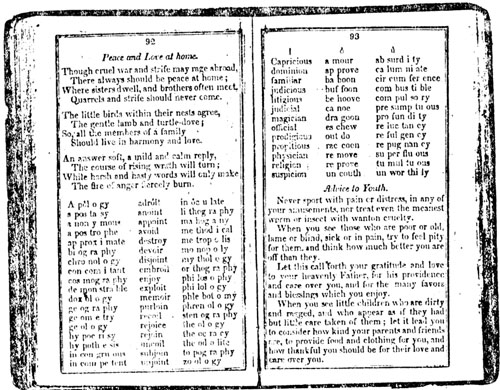 92
Peace and Love at home.
Though cruel war and strife may rage abroad,
There always should be peace at home;
Where sisters dwell, and brothers often meet,
Quarrels and strife should never come.
The little birds within their nests agree,
The gentle lamb and turtle-dove;
So, all the members of a family
Should live in harmony and love.
An answer soft, a mild and calm reply,
The course of rising wrath will turn;
While harsh and hasty words will only make
The fire of anger fiercely burn.
A pol o gy adroit in oc u late
a pos ta sy anoint li thog ra phy
a non y mous appoint ma hog a ny
a pos tro phe avoid me thod i cal
ap prox i mate destroy me trop o lis
bi og ra phy devoir mo nop o ly
chro nol o gy disjoint my thol o gy
con com i tant embroil or thog ra phy
cos mog ra phy enjoy phi los o phy
de mon stra ble exploit phi lol o gy
dox ol o gy memoir phle bot o my
ge og ra phy purloin phren ol o gy
ge om e try recoil sten og ra phy
ge ol o gy rejoice the ol o gy
hy poc ri sy rejoin the oc ra cy
hy poth e sis the ol o
in con gru ous subjoin to pog ra phy
in com pe tent zo ol o gy
93
Capricious a mour ab surd i ty
dominion ap prove ca lum ni ate
familiar ba boon cir cum fer ence
judicious buf foon com bus ti ble
litigious be hoove com pul so ry
judicial ca noe pre sump tu ous
magician dra goon pro fun di ty
official es chew re luc tan cy
prodigious out do re ful gen cy
propitious rac coon re pug nan cy
physician re move su per flu ous
religion re prove tu mul tu ous
suspicion un couth un wor thi ly
Advice to Youth.
Never sport with pain or distress, in any
of your amusements, nor treat even the meanest
worm or insect with wanton cruelty.
When you see those who are poor or old,
lame or blind, sick or in pain, try to feel pity
for them, and think how much better you are
off than they.
Let this call forth your gratitude and love
to your heavenly Father, for his providence
and care over you, and for the many favors
and blessings which you enjoy.
When you see little children who are dirty
and ragged, and who appear as if they had
but little care taken of them; let it lead you
to consider how kind your parents and friends
are, to provide food and clothing for you, and
how thankful you should be for their love and
care over you.